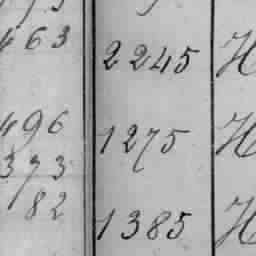 463 2245 H
496 1275 H
373
82 1385 H